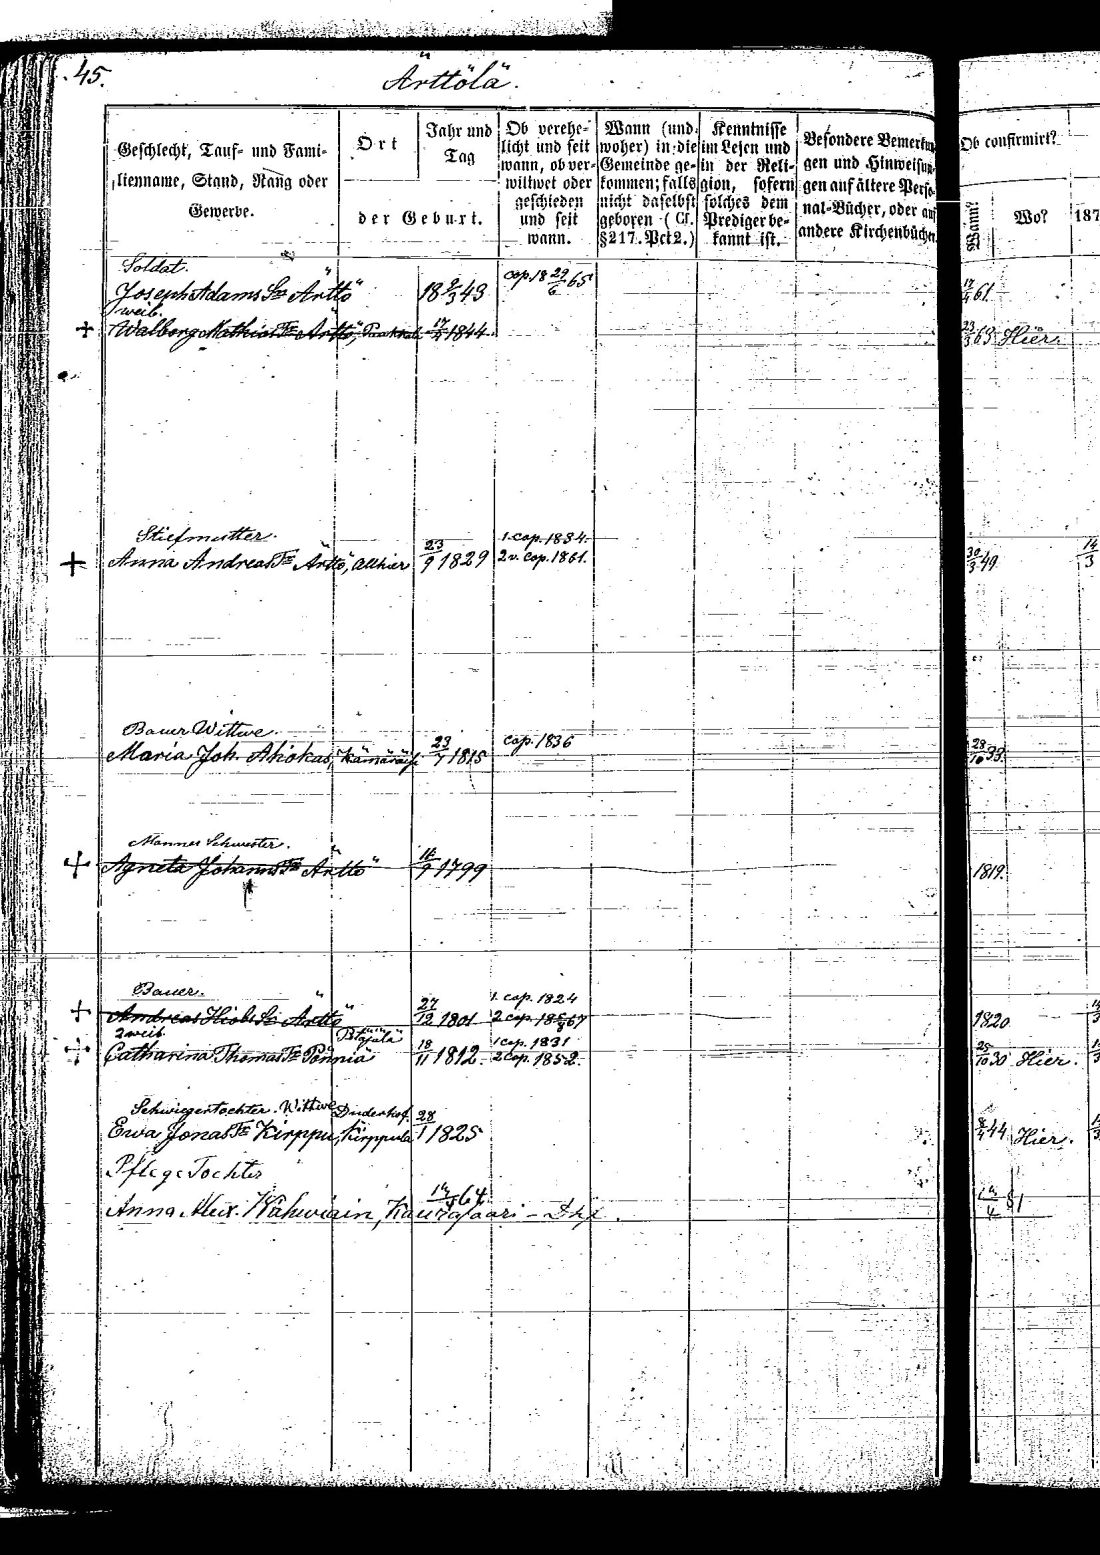 45.
Ärttölä.
Geschlecht, Tauf- und Fami-
lienname, Stand, Rang oder
Gewerbe.
Ort
Jahr und
Tag
der Geburt.
Ob verehe-
licht und seit
wann, ob ver-
wittwet oder
geschieden
und seit
wann.
Wann (und
woher) in die
Gemeinde ge-
kommen; falls
nicht daselbst
geboren (Cf.
§217. Pct2.)
Kenntnisse
im Lesen und
in der Reli-
gion, sofern
solches dem
Prediger be-
kannt ist.
Besondere Bemerkun
gen und Hinweisun
gen auf ältere Perso
nal-Bücher, oder auf
andere Kirchenbücher
Ob confirmirt?
Wann?
Wo?
187
Soldat.
Joseph Adams Sn Ärttö 18 2/3 43 cop. 18 29/6 65 61
weib.
+ Walborg Mathias Tr Ärttö, 17/4 1844 23/3 63 Hier.
Stiefmutter.
+ Anna Andreas Tr Ärttö, allhier 23/9 1829 1. cop. 1834. 2 v. cop. 1861. 30/3 49
Bauer Wittwe.
Maria Joh. Ahokas, 23/7 1815 cop. 1836 28/10 33.
Mannes Schwester.
+ Agneta Johanns Tr Ärttö 1799 1819.
Bauer.
+ Andreas Hiobs Sn Ärttö 27/12 1801 1. cop. 1824 2 cop. 1820
2 weib
+ Catharina Thomas Tr Pönniä 18/11 1812. 1 cop. 1831 2 cop. 1852. 25/10 30 Hier.
Schwiegertochter. Wittwe Duderhof
Ewa Jonas Tr Kirppu, Kirppula 28/1 1825 44 Hier.
Pflege Tochter
Anna Alex. Kähwiäin, Kaurasaari - Dhf.